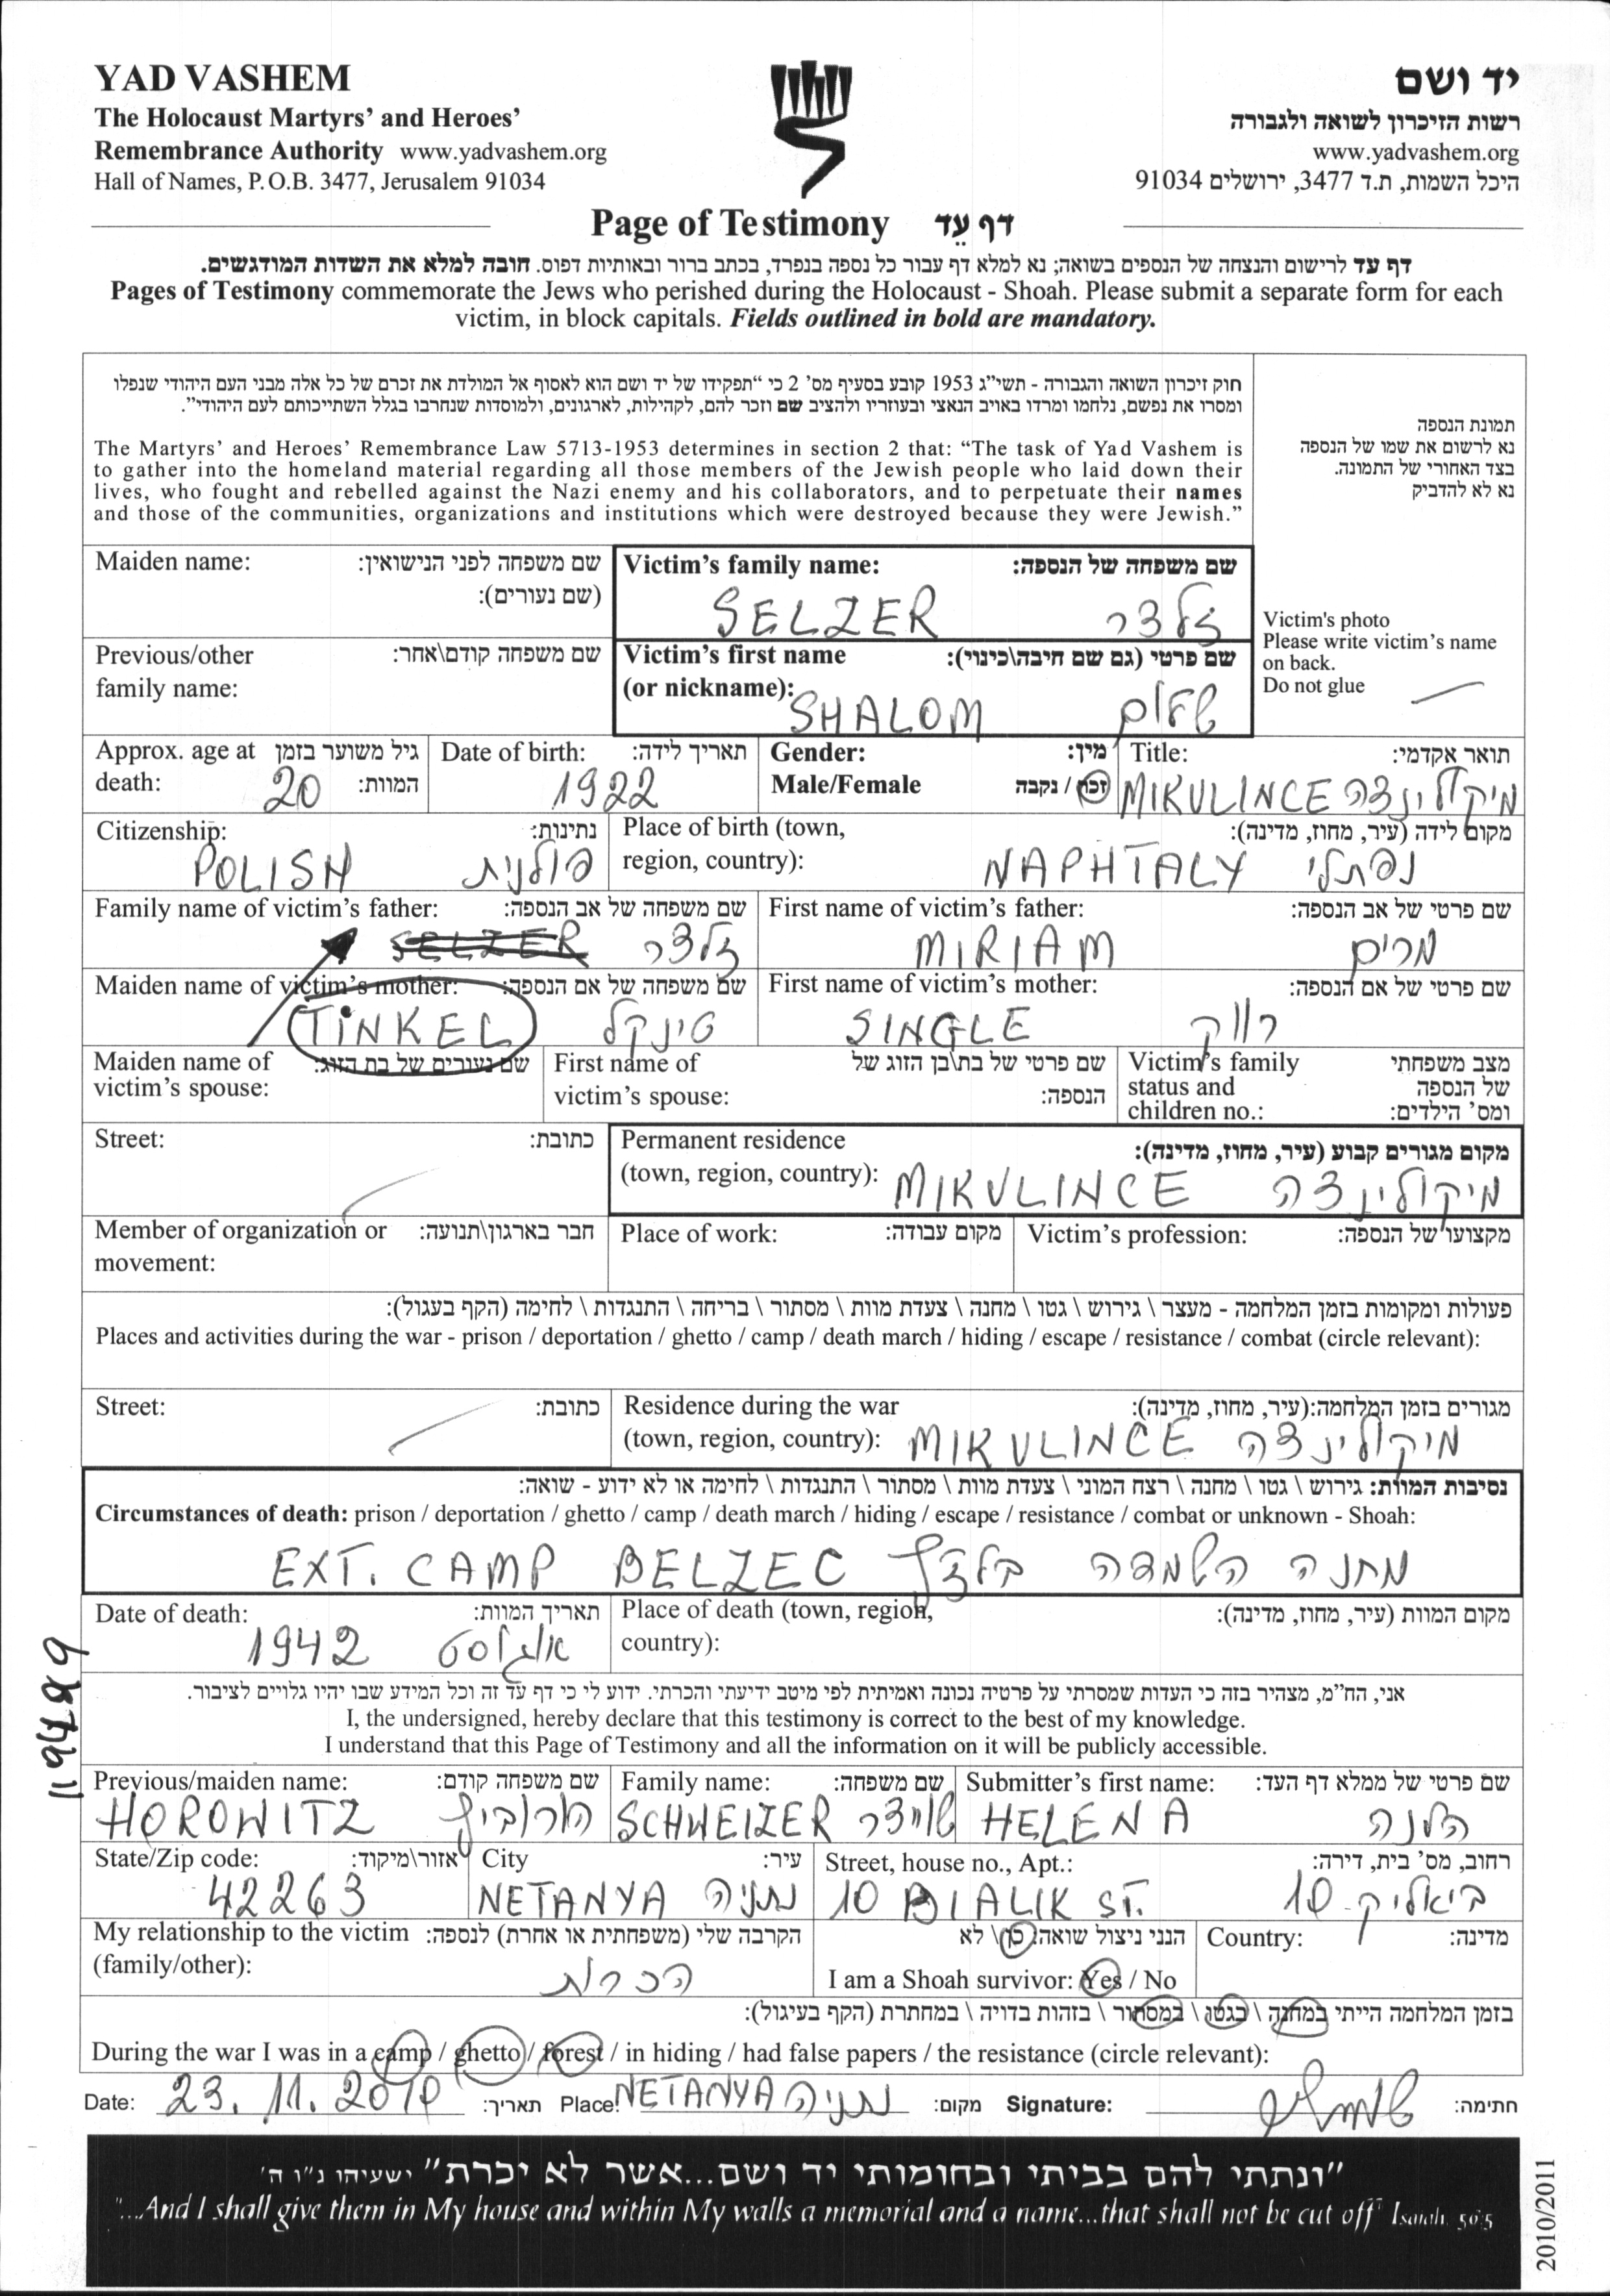 YAD VASHEM
The Holocaust Martyrs' and Heroes'
Remembrance Authority www.yadvashem.org
Hall of Names, P.O.B. 3477, Jerusalem 91034
יד ושם
רשות הזיכרון לשואה ולגבורה
www.yadvashem.org
היכל השמות, ת.ד 3477, ירושלים 91034
Page of Testimony דף עֵד
דף עד לרישום והנצחה של הנספים בשואה; נא למלא דף עבור כל נספה בנפרד, בכתב ברור ובאותיות דפוס. חובה למלא את השדות המודגשים.
Pages of Testimony commemorate the Jews who perished during the Holocaust - Shoah. Please submit a separate form for each
victim, in block capitals. Fields outlined in bold are mandatory.
חוק זיכרון השואה והגבורה - תשי"ג 1953 קובע בסעיף מס' 2 כי "תפקידו של יד ושם הוא לאסוף אל המולדת את זכרם של כל אלה מבני העם היהודי שנפלו
ומסרו את נפשם, נלחמו ומרדו באויב הנאצי ובעוזריו ולהציב שם וזכר להם, לקהילות, לארגונים, ולמוסדות שנחרבו בגלל השתייכותם לעם היהודי".
The Martyrs' and Heroes' Remembrance Law 5713-1953 determines in section 2 that: "The task of Yad Vashem is
to gather into the homeland material regarding all those members of the Jewish people who laid down their
lives, who fought and rebelled against the Nazi enemy and his collaborators, and to perpetuate their names
and those of the communities, organizations and institutions which were destroyed because they were Jewish."
תמונת הנספה
נא לרשום את שמו של הנספה
בצד האחורי של התמונה.
נא לא להדביק
Victim's photo
Please write victim's name
on back.
Do not glue
Maiden name: שם משפחה לפני הנישואין:
(שם נעורים):
Victim's family name: שם משפחה של הנספה:
SELZER זלצר
Previous/other שם משפחה קודם\אחר:
family name:
Victim's first name שם פרטי (גם שם חיבה\כינוי):
(or nickname): SHALOM שלום
Approx. age at גיל משוער בזמן
death: 20 המוות:
Date of birth: תאריך לידה:
1922
Gender: מין:
Male/Female זכר / נקבה
Title: תואר אקדמי:
MIKULINCE מיקולינצה
Citizenship: נתינות:
POLISH פולנית
Place of birth (town, מקום לידה (עיר, מחוז, מדינה):
region, country): NAPHTALY נפתלי
Family name of victim's father: שם משפחה של אב הנספה:
SELZER זלצר
First name of victim's father: שם פרטי של אב הנספה:
MIRIAM מרים
Maiden name of victim's mother: שם משפחה של אם הנספה:
TINKEL טינקל
First name of victim's mother: שם פרטי של אם הנספה:
SINGLE רווק
Maiden name of שם נעורים של בת הזוג:
victim's spouse:
First name of שם פרטי של בת\בן הזוג של
victim's spouse: הנספה:
Victim's family מצב משפחתי
status and של הנספה
children no.: ומס' הילדים:
Street: כתובת:
Permanent residence מקום מגורים קבוע (עיר, מחוז, מדינה):
(town, region, country): MIKULINCE מיקולינצה
Member of organization or חבר בארגון\תנועה:
movement:
Place of work: מקום עבודה:
Victim's profession: מקצועו של הנספה:
פעולות ומקומות בזמן המלחמה - מעצר \ גירוש \ גטו \ מחנה \ צעדת מוות \ מסתור \ בריחה \ התנגדות \ לחימה (הקף בעגול):
Places and activities during the war - prison / deportation / ghetto / camp / death march / hiding / escape / resistance / combat (circle relevant):
Street: כתובת:
Residence during the war מגורים בזמן המלחמה:(עיר, מחוז, מדינה):
(town, region, country): MIKULINCE מיקולינצה
נסיבות המוות: גירוש \ גטו \ מחנה \ רצח המוני \ צעדת מוות \ מסתור \ התנגדות \ לחימה או לא ידוע - שואה:
Circumstances of death: prison / deportation / ghetto / camp / death march / hiding / escape / resistance / combat or unknown - Shoah:
EXT. CAMP BELZEC מחנה השמדה בלזץ
Date of death: תאריך המוות:
1942 אוגוסט
Place of death (town, region, מקום המוות (עיר, מחוז, מדינה):
country):
אני, הח"מ, מצהיר בזה כי העדות שמסרתי על פרטיה נכונה ואמיתית לפי מיטב ידיעתי והכרתי. ידוע לי כי דף עד זה וכל המידע שבו יהיו גלויים לציבור.
I, the undersigned, hereby declare that this testimony is correct to the best of my knowledge.
I understand that this Page of Testimony and all the information on it will be publicly accessible.
Previous/maiden name: שם משפחה קודם:
HOROWITZ הורוביץ
Family name: שם משפחה:
SCHWEIZER שוויצר
Submitter's first name: שם פרטי של ממלא דף העד:
HELENA הלנה
State/Zip code: אזור\מיקוד:
42263
City עיר:
NETANYA נתניה
Street, house no., Apt.: רחוב, מס' בית, דירה:
10 BIALIK ST. ביאליק 10
My relationship to the victim הקרבה שלי (משפחתית או אחרת) לנספה:
(family/other): הכרות
הנני ניצול שואה: כן\ לא
I am a Shoah survivor: Yes / No
Country: מדינה:
בזמן המלחמה הייתי במחנה \ בגטו \ במסתור \ בזהות בדויה \ במחתרת (הקף בעיגול):
During the war I was in a camp / ghetto / forest / in hiding / had false papers / the resistance (circle relevant):
Date: 23. 11. 2010 תאריך: Place: NETANYA נתניה מקום: Signature: חתימה:
"ונתתי להם בביתי ובחומותי יד ושם...אשר לא יכרת" ישעיהו נ"ו ה'
"...And I shall give them in My house and within My walls a memorial and a name...that shall not be cut off" Isaiah, 56:5
2010/2011